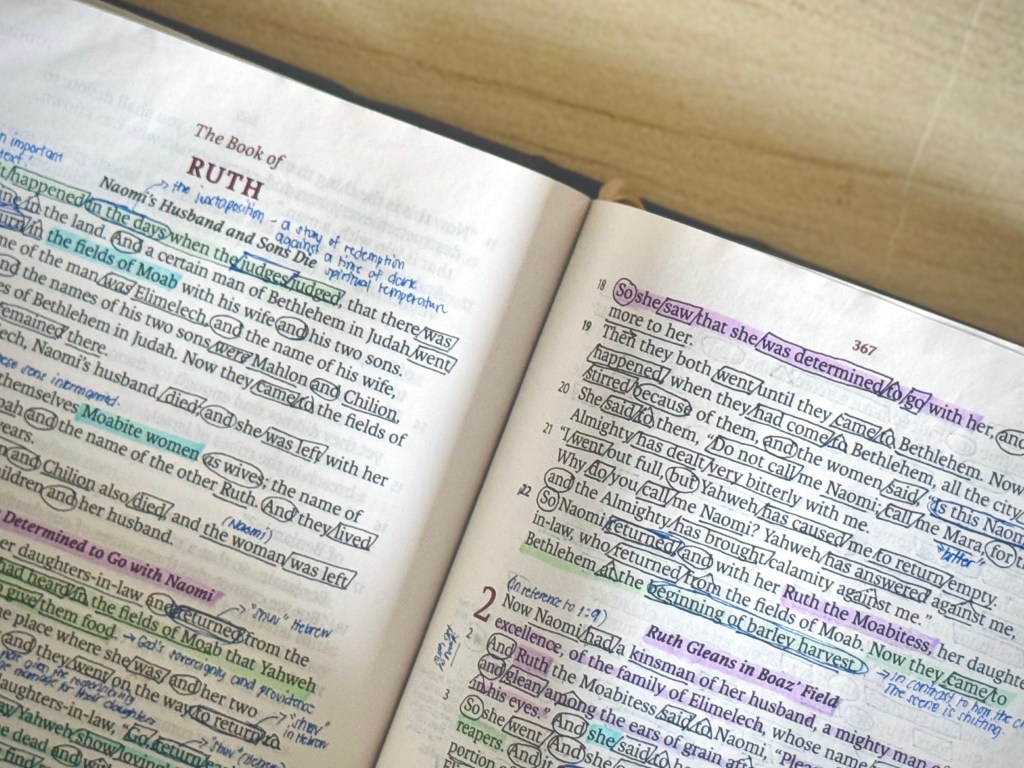 The Book of
RUTH
n important
text!
Naomi's Husband and Sons Die
→ the juxtaposition - a story of redemption
against a time of
spiritual temperature
it happened in the days when the judges judged, that there was
in the land. And a certain man of Bethlehem in Judah went
in the fields of Moab with his wife and his two sons.
me of the man was Elimelech, and the name of his wife,
nd the names of his two sons were Mahlon and Chilion,
es of Bethlehem in Judah. Now they came to the fields of
remained there.
ech, Naomi's husband, died, and she was left with her
intermarried.
themselves Moabite women as wives; the name of
and the name of the other Ruth. And they lived
years.
and Chilion also died, and the woman was left
(Naomi)
ildren and her husband.
Determined to Go with Naomi
er daughters-in-law and returned from the
→ "שוב" Hebrew
had heard in the fields of Moab that Yahweh
give them food.
→ God's sovereignty and providence
e place where she was, and her two
and they went on the way to return
→ "שוב" in Hebrew
aughters-in-law, "Go, return
Yahweh show
e dead and with
367
18 So she saw that she was determined to go with her, and
more to her.
19 Then they both went until they came to Bethlehem. Now
happened when they had come to Bethlehem, all the city
stirred because of them, and the women said, "Is this Naom
20 She said to them, "Do not call me Naomi; call me Mara, for th
"bitter"
Almighty has dealt very bitterly with me.
21 "I went out full, but Yahweh has caused me to return empty.
Why do you call me Naomi? Yahweh has answered against me,
and the Almighty has brought calamity against me."
22 So Naomi returned, and with her Ruth the Moabitess, her daughte
in-law, who returned from the fields of Moab. Now they came to
Bethlehem at the beginning of barley harvest.
→ in contrast to how the c
The scene is shifting.
(in reference to 1:9)
Ruth Gleans in Boaz' Field
2 Now Naomi had a kinsman of her husband, a mighty man of
excellence, of the family of Elimelech, whose name
2 And Ruth the Moabitess said to Naomi, "Pleas
and glean among the ears of grain aft
in his eyes." And she said to
3 So she went
reapers. And
portion